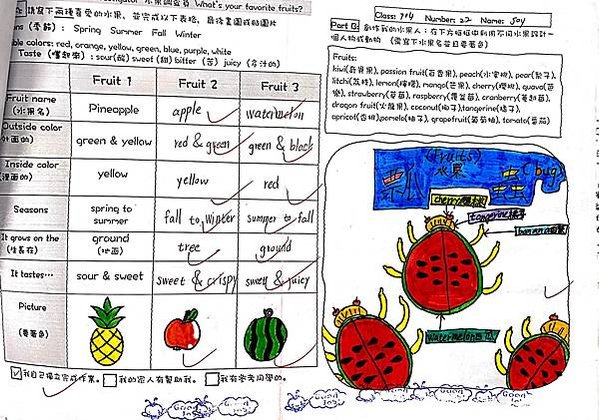 What's your favorite fruits?
請寫下兩種喜愛的水果，並完成以下表格，最後畫圖或貼圖片
(季節): Spring Summer Fall Winter
ble colors: red, orange, yellow, green, blue, purple, white
Taste (嚐起來): sour(酸) sweet (甜) bitter (苦) juicy (多汁的)
Fruit 1 Fruit 2 Fruit 3
Fruit name (水果名) Pineapple apple watermelon
Outside color (外面的) green & yellow red & green green & black
Inside color (裡面的) yellow yellow red
Seasons spring to summer fall to winter summer to fall
It grows on the (生長在) ground (地面) tree ground
It tastes… sour & sweet sweet & crispy sweet & juicy
Picture (要著色)
我自己獨立完成作業。 我的家人有幫助我。 我有參考同學的。
Good Job
Class: 704 Number: 22 Name: Joy
Part B: 創作我的水果人：在下方框框中利用不同水果設計一
個人物或動物
Fruits:
kiwi(奇異果), passion fruit(百香果), peach(水蜜桃), pear(梨子),
litchi(荔枝), lemon(檸檬), mango(芒果), cherry(櫻桃), guava(芭
樂), strawberry(草莓), raspberry(覆盆莓), cranberry(蔓越莓),
dragon fruit(火龍果), coconut(椰子), tangerine(橘子),
apricot(杏桃), pomelo(柚子), grapefruit(葡萄柚), tomato(番茄)
(fruits) 水果
(bug)
cherry
tangerine橘子
banana
watermelon西瓜
Good Job